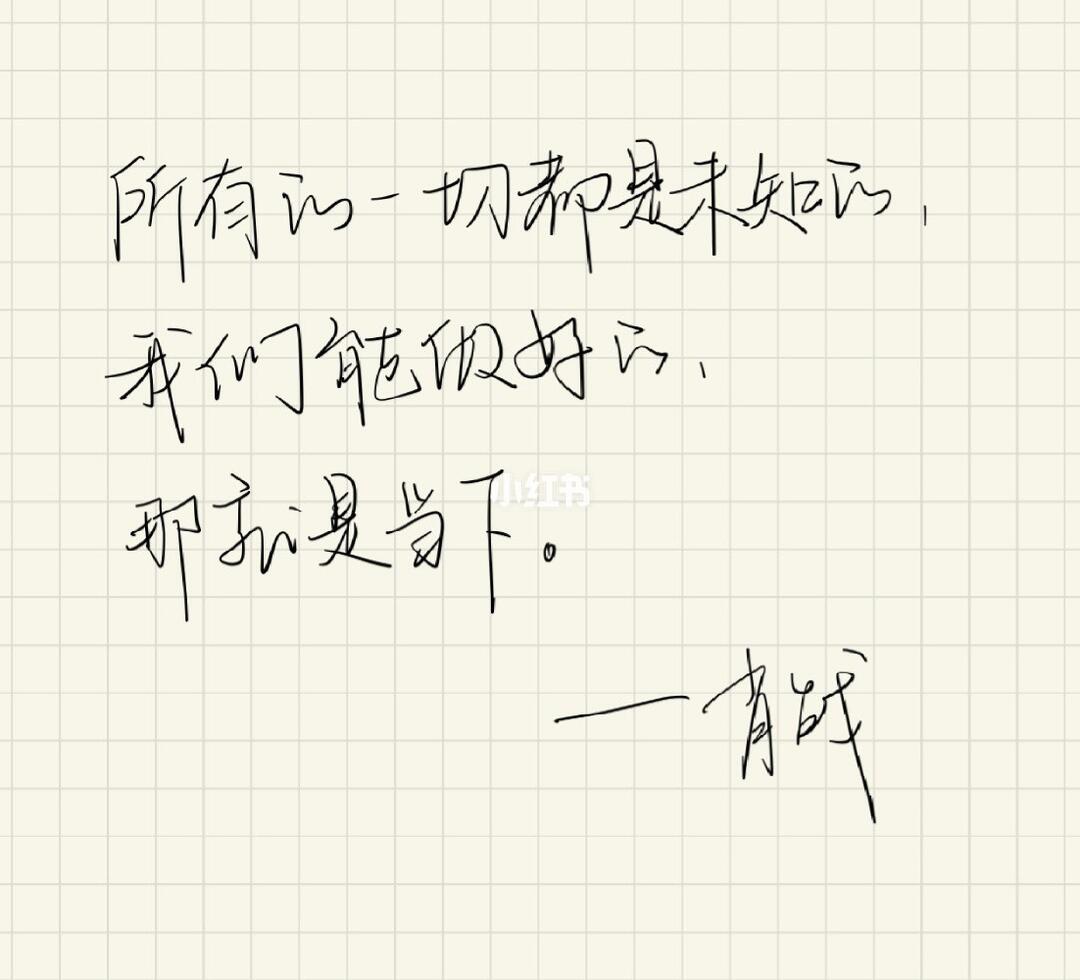 所有的一切都是未知的，
我们能做好的，
那就是当下。
小红书
——肖战